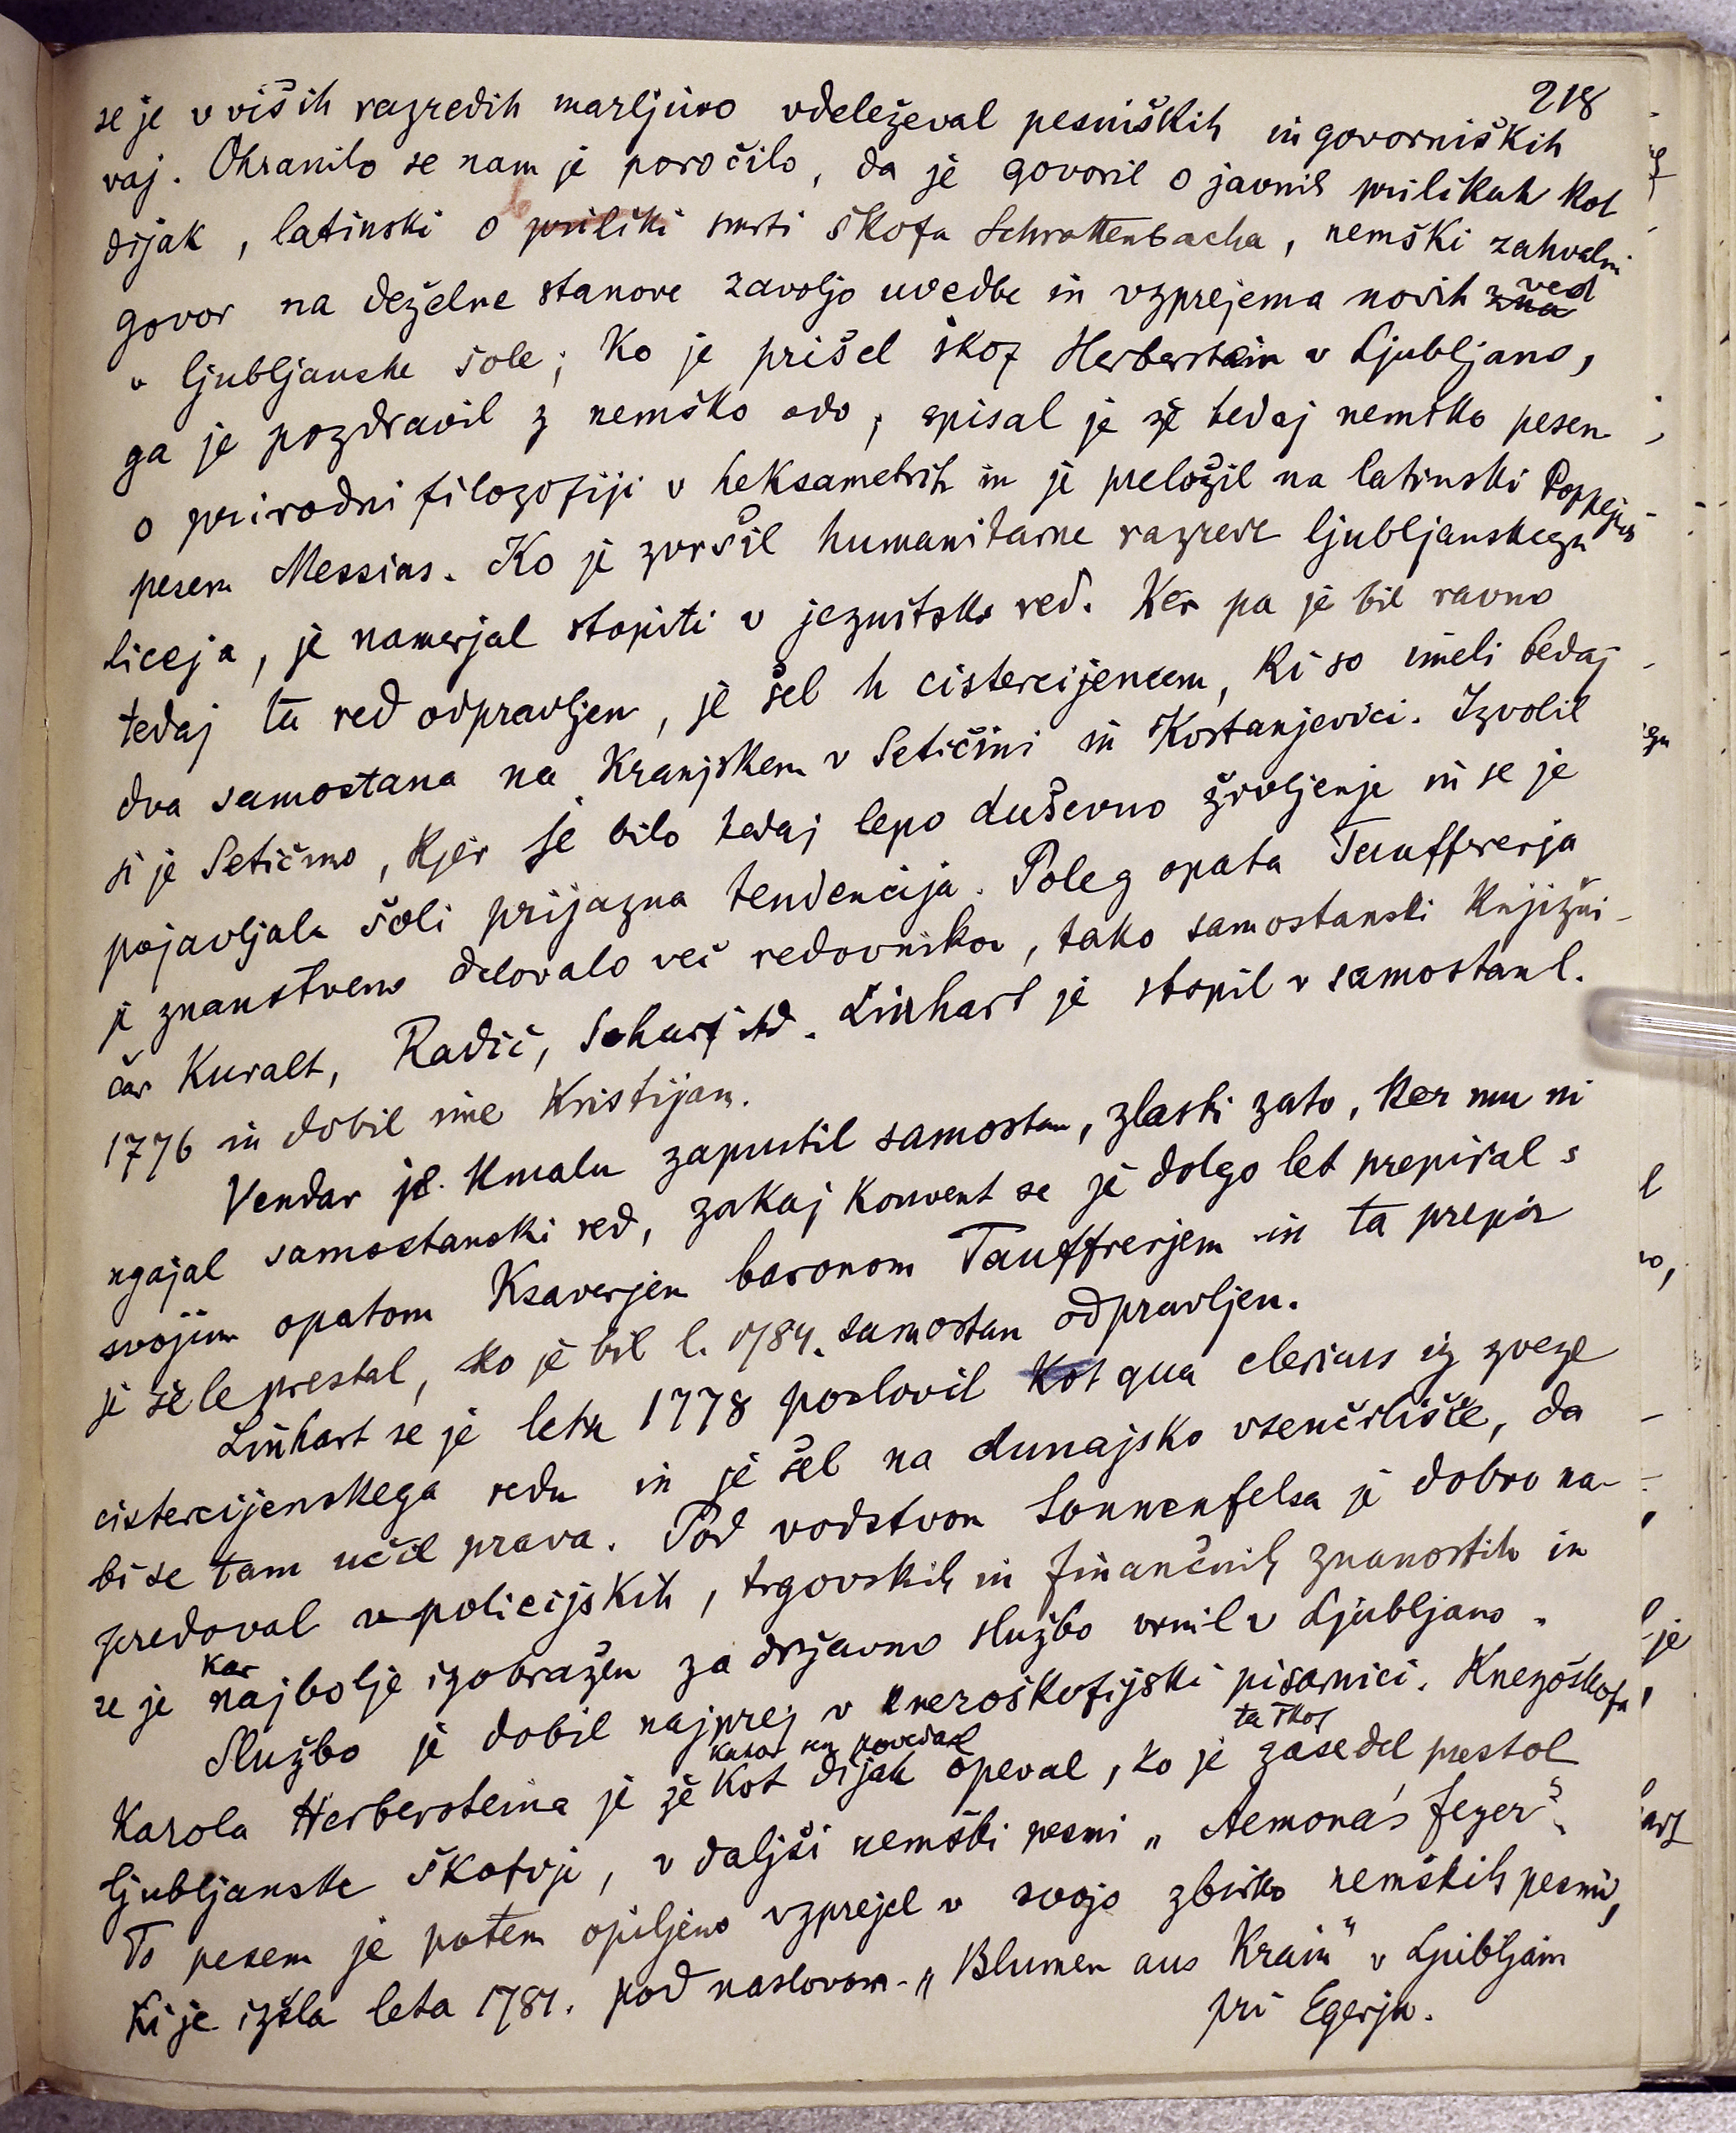 218
se je v viših razredih marljivo vdeleževal pesniških in govorniških
vaj. Ohranilo se nam je poročilo, da je govoril o javnih prilikah kot
dijak, latinski o priliki smrti škofa Schrottenbacha, nemški zahvalni
govor na deželne stanove zavoljo uvedbe in vzprejema novih zna ved
v ljubljanske šole; Ko je prišel škof Herberstein v Ljubljano,
ga je pozdravil z nemško odo, spisal je že tedaj nemško pesem
o prirodni filozofiji v heksametrih in je preložil na latinski Poppejev
pesem Messias. Ko je zvršil humanitarne razrede ljubljanskega
liceja, je namerjal stopiti v jezuitski red. Ker pa je bil ravno
tedaj ta red odpravljen, je šel h cistercijencem, ki so imeli tedaj
dva samostana na Kranjskem v Setičini in Kostanjevici. Izvolil
si je Setičino, kjer je bilo tedaj lepo duševno življenje in se je
pojavljala šoli prijazna tendencija. Poleg opata Tauffrerja
je znanstveno delovalo več redovnikov, tako samostanski knjižni-
čar Kuralt, Radič, Scharf itd. Linhart je stopil v samostan l.
1776 in dobil ime Kristijan.
Vendar je kmalu zapustil samostan, zlasti zato, ker mu ni
ugajal samostanski red, zakaj konvent se je dolgo let prepiral s
svojim opatom Ksaverjem baronom Tauffrerjem in ta prepir
je šele prestal, ko je bil l. 1784. samostan odpravljen.
Linhart se je leta 1778 poslovil kot qua clericus iz zveze
cistercijenskega reda in je šel na dunajsko vseučilišče, da
bi se tam učil prava. Pod vodstvom Sonnenfelsa je dobro na-
predoval v policijskih, trgovskih in finančnih znanostih in
se je kar najbolje izobražen za državno službo vrnil v Ljubljano.
Službo je dobil najprej v knezoškofijski pisarnici. Knezoškofa
Karola Herbersteina je že kot dijak kakor sem povedal opeval, ko je ta škof zasedel prestol
ljubljanske škofije, v daljši nemški pesmi „Aemona's feyer“.
To pesem je potem opiljeno vzprejel v svojo zbirko nemških pesmi,
ki je izšla leta 1781. pod naslovom „Blumen aus Krain“ v Ljubljani
pri Egerju.